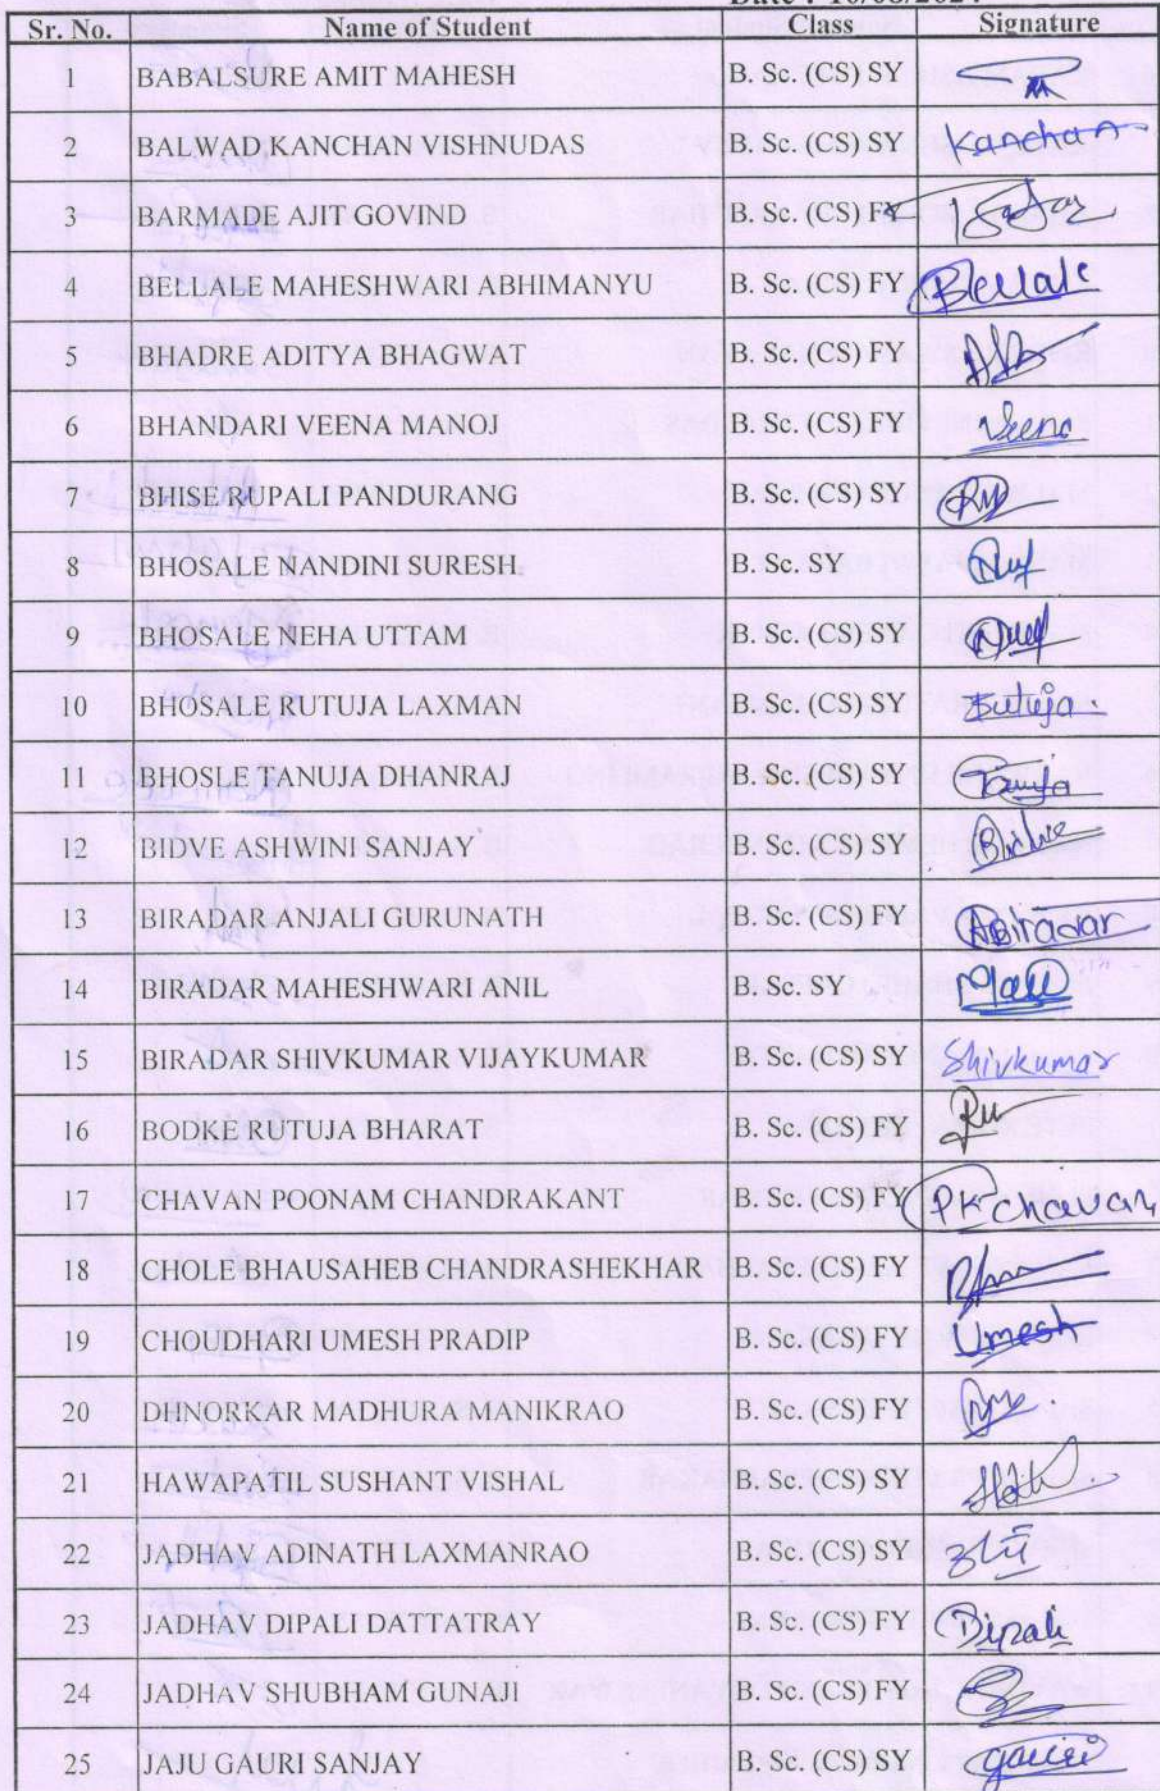 Sr. No. Name of Student Class Signature
1 BABALSURE AMIT MAHESH B. Sc. (CS) SY
2 BALWAD KANCHAN VISHNUDAS B. Sc. (CS) SY Kanchan
3 BARMADE AJIT GOVIND B. Sc. (CS) FY
4 BELLALE MAHESHWARI ABHIMANYU B. Sc. (CS) FY Bellale
5 BHADRE ADITYA BHAGWAT B. Sc. (CS) FY
6 BHANDARI VEENA MANOJ B. Sc. (CS) FY Veena
7 BHISE RUPALI PANDURANG B. Sc. (CS) SY
8 BHOSALE NANDINI SURESH B. Sc. SY
9 BHOSALE NEHA UTTAM B. Sc. (CS) SY
10 BHOSALE RUTUJA LAXMAN B. Sc. (CS) SY Rutuja
11 BHOSLE TANUJA DHANRAJ B. Sc. (CS) SY Tanuja
12 BIDVE ASHWINI SANJAY B. Sc. (CS) SY Bidve
13 BIRADAR ANJALI GURUNATH B. Sc. (CS) FY ABiradar
14 BIRADAR MAHESHWARI ANIL B. Sc. SY
15 BIRADAR SHIVKUMAR VIJAYKUMAR B. Sc. (CS) SY Shivkumar
16 BODKE RUTUJA BHARAT B. Sc. (CS) FY
17 CHAVAN POONAM CHANDRAKANT B. Sc. (CS) FY PKChavan
18 CHOLE BHAUSAHEB CHANDRASHEKHAR B. Sc. (CS) FY
19 CHOUDHARI UMESH PRADIP B. Sc. (CS) FY Umesh
20 DHNORKAR MADHURA MANIKRAO B. Sc. (CS) FY
21 HAWAPATIL SUSHANT VISHAL B. Sc. (CS) SY
22 JADHAV ADINATH LAXMANRAO B. Sc. (CS) SY
23 JADHAV DIPALI DATTATRAY B. Sc. (CS) FY Dipali
24 JADHAV SHUBHAM GUNAJI B. Sc. (CS) FY
25 JAJU GAURI SANJAY B. Sc. (CS) SY gauri